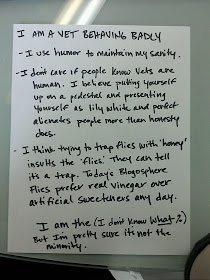 I AM A VET BEHAVING BADLY
- I use humor to maintain my sanity.
- I don't care if people know Vets are
human. I believe putting yourself
up on a pedestal and presenting
yourself as lily white and perfect
alienates people more than honesty
does.
- I think trying to trap flies with "honey"
insults the 'flies'. They can tell
its a trap. Today's Blogosphere
Flies prefer real vinegar over
artificial sweetners any day.
I am the (I don't know what %)
But I'm pretty sure its not the
minority.